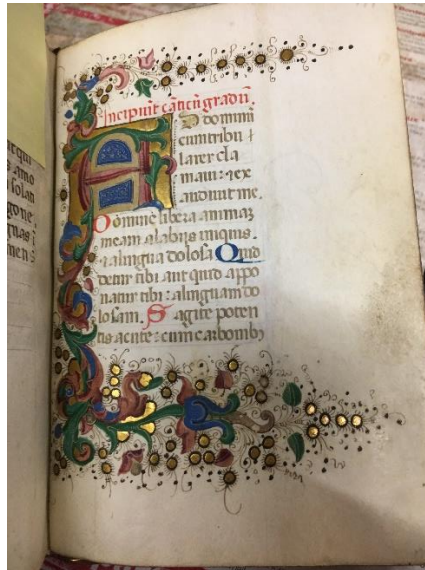 Incipiūt cāticū graduū.
A D dominū
cum tribu
larer cla
maui: ⁊ ex
audiuit me.
Domine libera animaꝫ
meam a labiis iniquis.
⁊ a lingua dolosa. Quid
detur tibi aut quid appo
natur tibi: a linguam do
losam. Sagite poten
tis acute: cum carbonibꝫ